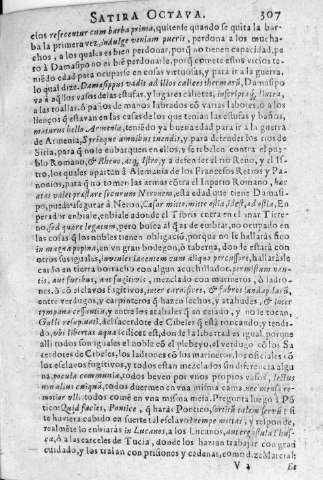 SATIRA OCTAVA. 307
cios resecentur cum barba prima, quitense quando se quita la bar-
ba la primera vez, indulge veniam pueris, perdona a los mucha-
chos, a los quales es bien perdonar, porq̃ no tienen capacidad, pe
ro à Damasipo no es biẽ perdonarle, porq̃ comete estos vicios te-
niẽdo edad para ocuparse en cosas virtuosas, y para ir a la guerra,
lo qual dize. Damasippus vadit ad illos calices thermarũ, Damasipo
va à aq̃llos vasos de las estufas, y lugares calietes, inscriptaq́; lintea,
a las toallas, ò paños de manos labrados cõ varias labores, ò a los
lienços q̃ estavan en las casas de los que tenian las estufas y baños,
maturus bello Armeniæ, teniẽdo ya buena edad para ir a la guerra
de Armenia, Syriæque amnibus tuendis, y para defender los rios de
Siria, para q̃ no se embarquen en ellos, y se rebelen contra el pue-
blo Romano, & Rheno, atq; Istro, y a defender el rio Reno, y el Is-
tro, los quales apartan à Alemania de los Franceses Retios y Pa-
nonios, para q̃ no tomen las armas cõtra el Imperio Romano, hæc
ætas valet præstare securum Neronem, esta edad que tiene Damasi-
po, puede assegurar à Neron, Cæsar mitte, mitte ostia, Idest, ad ostia, Em
perador enbiale, enbiale adonde el Tibris entra en el mar Tirre-
no, sed quære legatum, pero busca al q̃ as de enbiar, no ocupado en
las cosas q̃ los nobles tienen obligaciõ, porque no le hallaràs sino
in magna popina, en vn gran bodegon, ò taberna, don le estarà con
otros sus iguales, invenies iacentem cum aliquo percussore, hallarasle
caido en tierra borracho con algun acuchillador, permistum nau-
tis, aut furibus, aut fugitivis, mezclado con marineros, ò ladro-
nes, ò cõ esclavos fugitivos, inter carnifices, & fabros sandapilarũ,
entre verdugos, y carpinteros q̃ hazen lechos, y atahudes, & inter
tympana cessantia, y entre los atabales q̃ an cesado, y no le tocan,
Galli resupinati, del sacerdote de Cibeles q̃ està roncando, y tendi-
do, ubi libertas æqua est, los est, donde la libertad es igual, porque
alli todos son iguales el noble cõ el plebeyo, el verdugo cõ los Sa
cerdotes de Cibeles, los ladrones cõ los marineros, los oficiales cõ
los esclavos fugitivos, y todos estan mezclados sin diferencia algu
na, pocula communia, todos beven por vnos propios vasos, lectus
non alius cuiquã, todos duermen en vna misma cama, nec mensa re-
motior ulli, todos comẽ en vna misma mesa. Pregunta luego à Põ
tico: Quid facies, Pontice, q̃ haràs Pontico, sortitus talem servũ? si
te huviera cabido en suerte tal esclavo? nempe mittas, y respõde,
realmẽte lo enbiaràs in Lucanos, a los Lucanos, aut ergastula Thus-
ca, ò a las carceles de Tucia, donde los hazian trabajar con gran
cuidado, y los traian con prisiones y cadenas, como dize Marcial:
V 2 Et